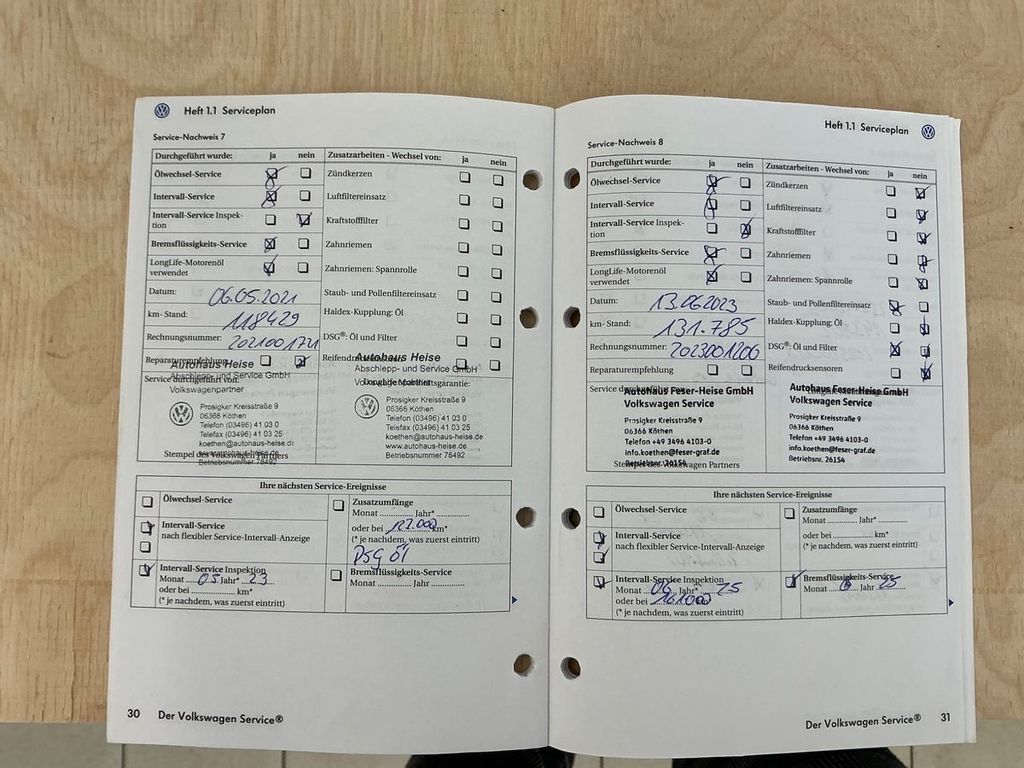 Heft 1.1 Serviceplan
Service-Nachweis 7
Durchgeführt wurde: ja nein
Zusatzarbeiten - Wechsel von: ja nein
Ölwechsel-Service
Zündkerzen
Intervall-Service
Luftfiltereinsatz
Intervall-Service Inspek-
tion
Kraftstofffilter
Bremsflüssigkeits-Service
Zahnriemen
LongLife-Motorenöl
verwendet
Zahnriemen: Spannrolle
Datum: 06.05.2021
Staub- und Pollenfiltereinsatz
km- Stand: 118429
Haldex-Kupplung: Öl
Rechnungsnummer: 202100174
DSG®: Öl und Filter
Reparaturempfehlung
Reifendrucksensoren
Autohaus Heise
Abschlepp- und Service GmbH
Service durchgeführt von:
Volkswagenpartner
Prosigker Kreisstraße 9
06366 Köthen
Telefon (03496) 41 03 0
Telefax (03496) 41 03 25
koethen@autohaus-heise.de
www.autohaus-heise.de
Stempel des Volkswagen Partners
Betriebsnummer 78492
Autohaus Heise
Abschlepp- und Service GmbH
Prosigker Kreisstraße 9
06366 Köthen
Telefon (03496) 41 03 0
Telefax (03496) 41 03 25
koethen@autohaus-heise.de
www.autohaus-heise.de
Betriebsnummer 78492
Ihre nächsten Service-Ereignisse
Ölwechsel-Service
Zusatzumfänge
Monat Jahr*
oder bei 127.000 km*
(* je nachdem, was zuerst eintritt)
DSG Öl
Intervall-Service
nach flexibler Service-Intervall-Anzeige
Intervall-Service Inspektion
Monat 05 Jahr* 23
oder bei km*
(* je nachdem, was zuerst eintritt)
Bremsflüssigkeits-Service
Monat Jahr
30 Der Volkswagen Service®
Heft 1.1 Serviceplan
Service-Nachweis 8
Durchgeführt wurde: ja nein
Zusatzarbeiten - Wechsel von: ja nein
Ölwechsel-Service
Zündkerzen
Intervall-Service
Luftfiltereinsatz
Intervall-Service Inspek-
tion
Kraftstofffilter
Bremsflüssigkeits-Service
Zahnriemen
LongLife-Motorenöl
verwendet
Zahnriemen: Spannrolle
Datum: 13.06.2023
Staub- und Pollenfiltereinsatz
km- Stand: 131.785
Haldex-Kupplung: Öl
Rechnungsnummer: 2023001206
DSG®: Öl und Filter
Reparaturempfehlung
Reifendrucksensoren
Service durchgeführt von:
Autohaus Feser-Heise GmbH
Volkswagen Service
Prosigker Kreisstraße 9
06366 Köthen
Telefon +49 3496 4103-0
info.koethen@feser-graf.de
Betriebsnr. 26154
Stempel des Volkswagen Partners
Autohaus Feser-Heise GmbH
Volkswagen Service
Prosigker Kreisstraße 9
06366 Köthen
Telefon +49 3496 4103-0
info.koethen@feser-graf.de
Betriebsnr. 26154
Ihre nächsten Service-Ereignisse
Ölwechsel-Service
Zusatzumfänge
Monat Jahr*
oder bei km*
(* je nachdem, was zuerst eintritt)
Intervall-Service
nach flexibler Service-Intervall-Anzeige
Intervall-Service Inspektion
Monat 06 Jahr* 25
oder bei 161000
(* je nachdem, was zuerst eintritt)
Bremsflüssigkeits-Service
Monat 6 Jahr 25
Der Volkswagen Service® 31